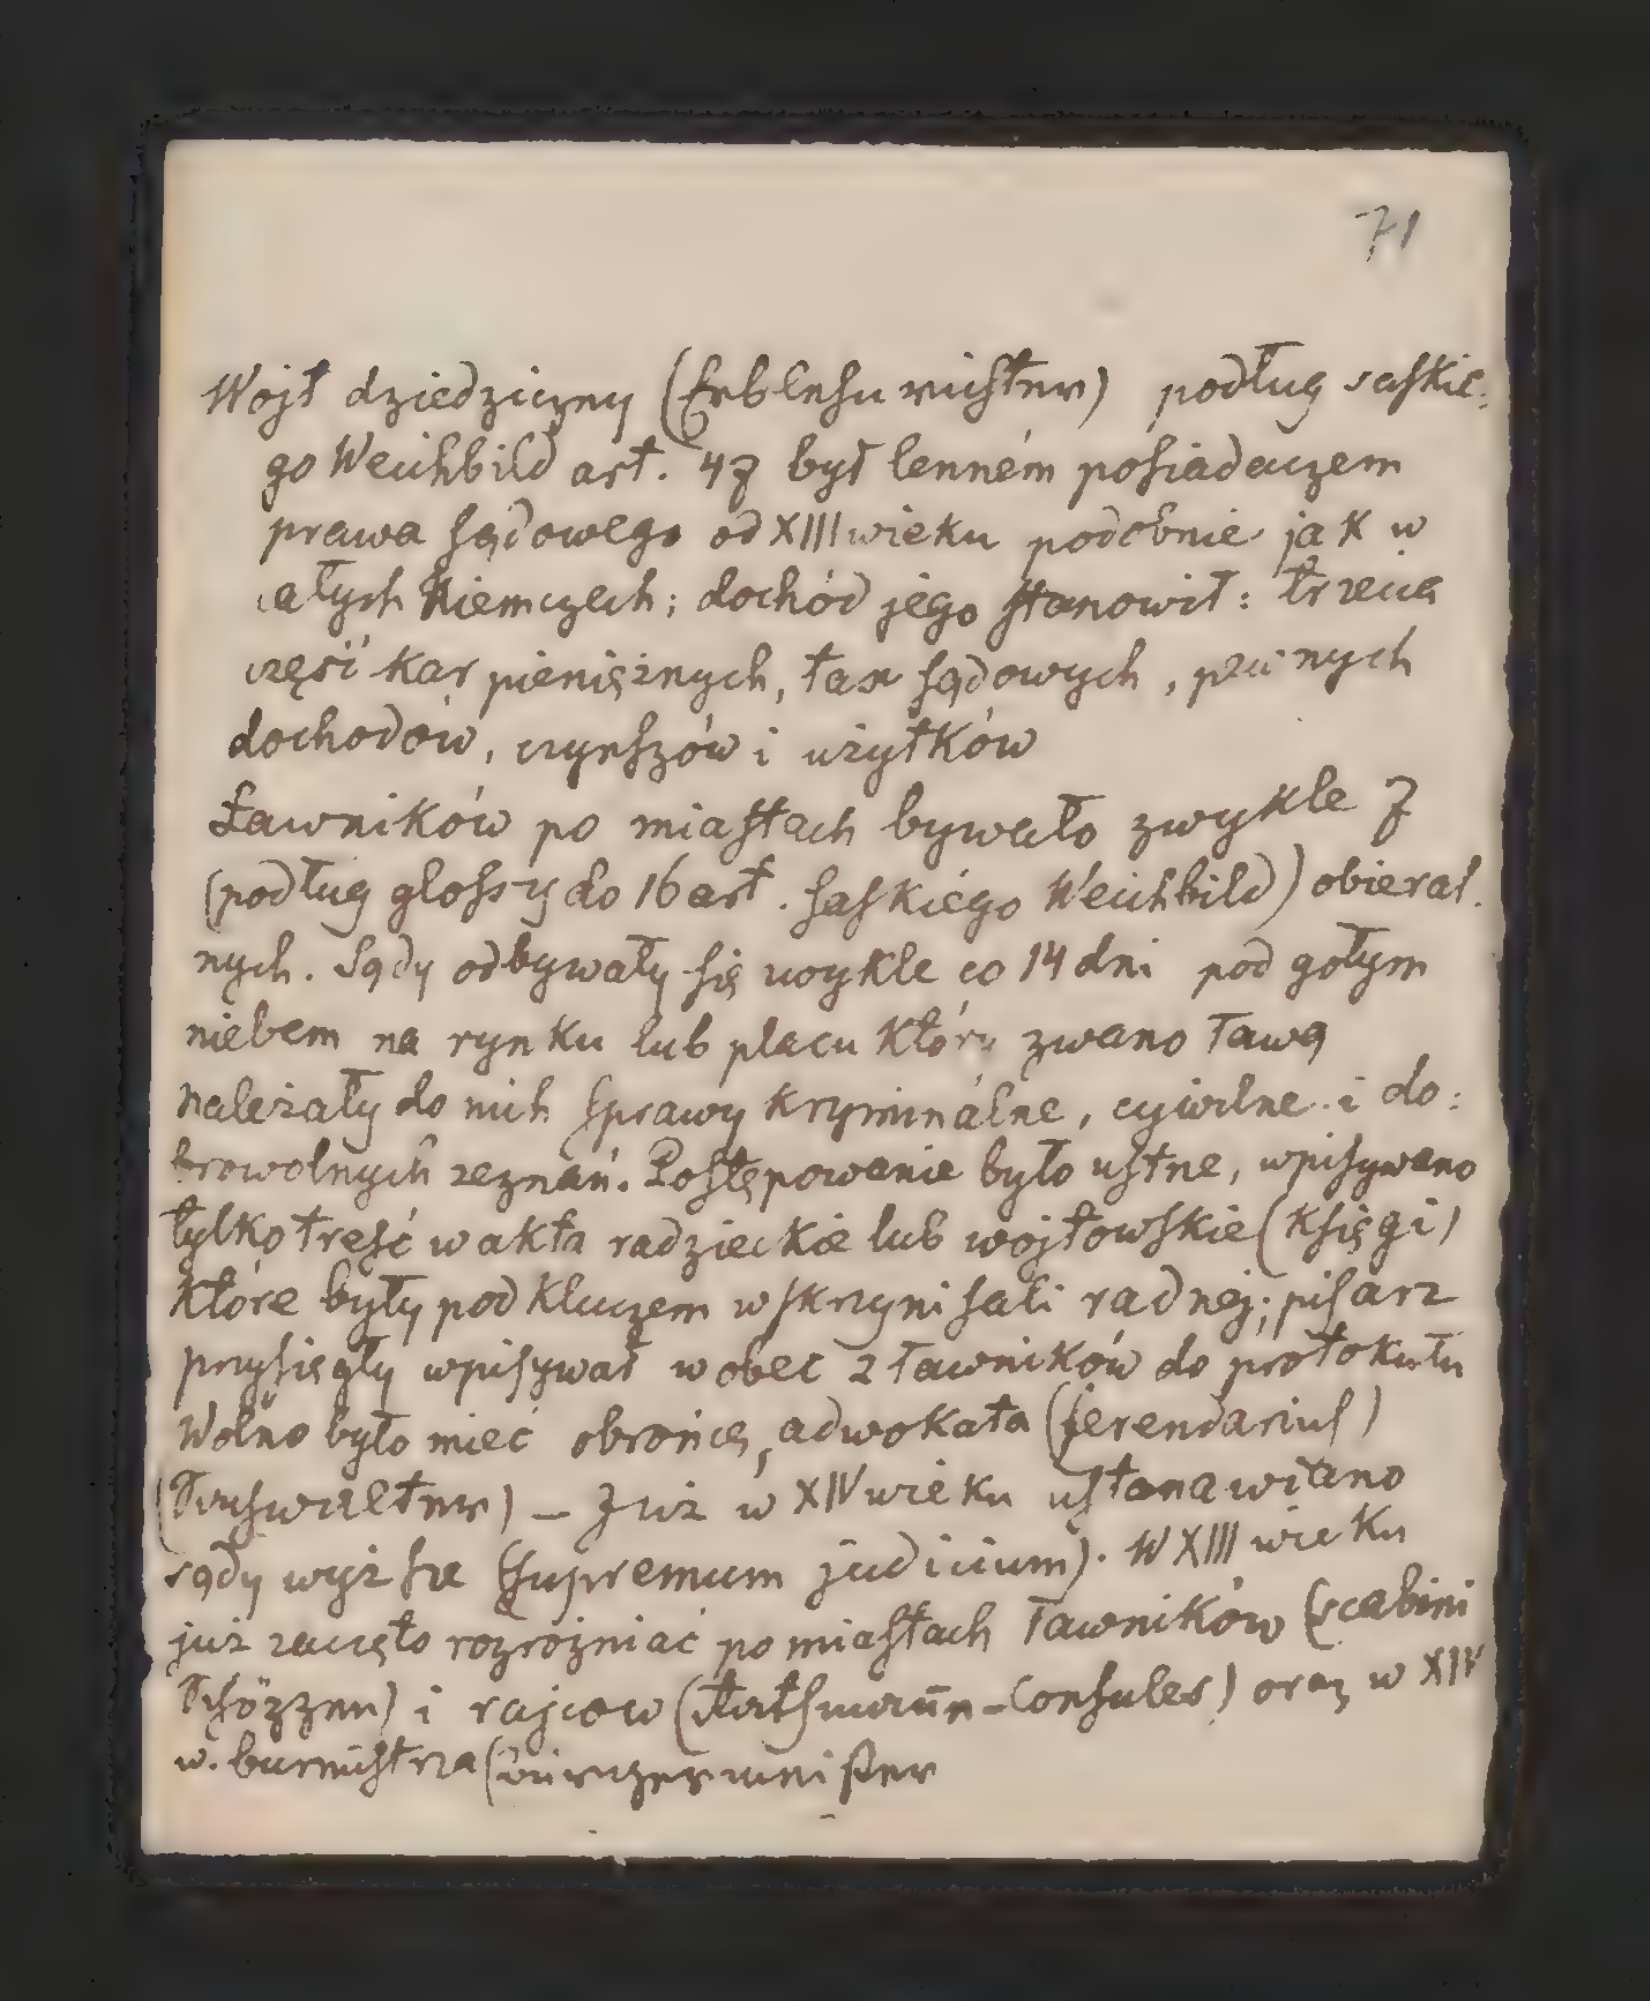 71
Wojt dziedziczny (Erblehnrichter) podług saskie:
go Weichbild art. 47 był lenném posiadaczem
prawa sądowego od XIII wieku podobnie jak w
całych Niemczech; dochód jego stanowił: trzecia
część kar pieniężnych, tax sądowych, nych
dochodów, czynszów i użytków
Ławników po miastach bywało zwykle 7
(podług glossy do 16 art. saskiégo Weichbild) obieral.
nych. Sądy odbywały się zwykle co 14 dni pod gołym
niebem na rynku lub placu który zwano ławą
należały do nich sprawy kryminálne, cywilne i do:
browolnych zeznań. Postępowanie było ustne, wpisywano
tylko treść w akta radzieckie lub wójtowskie (księgi)
które były pod kluczem w skrzyni sali radnej; pisarz
przysięgły wpisywał wobec 2 ławników do protokułu
Wolno było mieć obrońcę, adwokata (ferendarius)
(Sachwalter) – Już w XIV wieku ustanawiano
sądy wyższe (supremum judicium). W XIII wieku
już zaczęto rozrożniać po miastach ławników (scabini
Schözzen) i rajcow (Rathmann – Consules) oraz w XIV
w. burmistrza (Bürgermeister